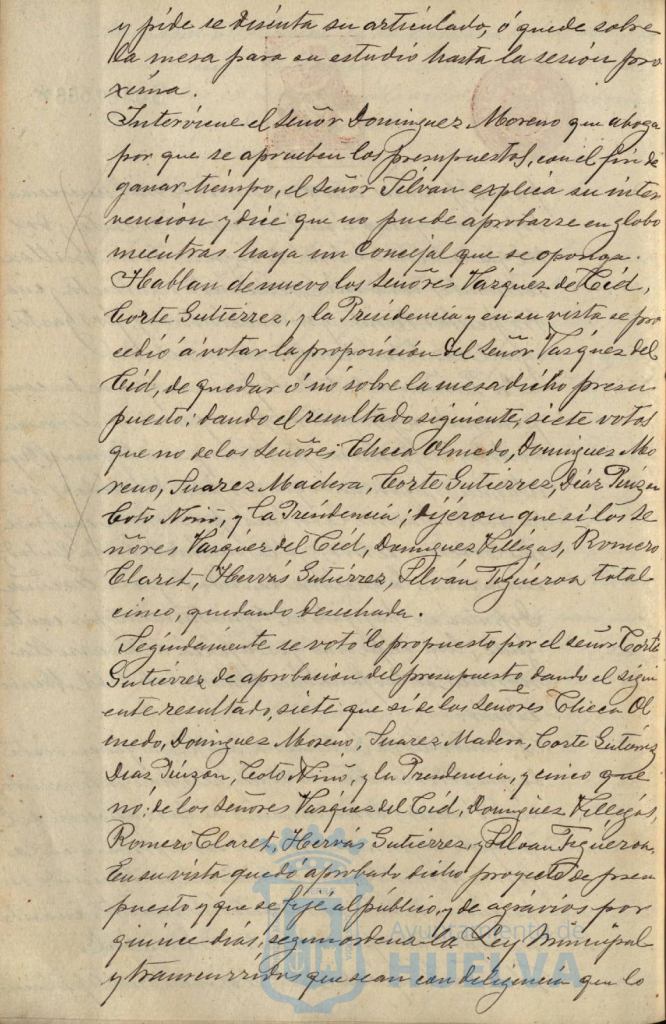 y pide se discuta su articulado, ó quede sobre
la mesa para su estudio hasta la sesión pro
xima.
Interviene el señor Dominguez Moreno que aboga
por que se aprueben los presupuestos, con el fin de
ganar tiempo, el señor Silván explica su inter
vención y dice que no puede aprobarse en globo
mientras haya un Concejal que se oponga.
Hablan de nuevo los señores Vazquez del Cid,
Corte Gutiérrez, y la Presidencia y en su vista se pro
cedió á votar la proposición del señor Vazquez del
Cid, de quedar ó nó sobre la mesa dicho presu
puesto; dando el resultado siguiente, siete votos
que no de los señores Checa Olmedo, Dominguez Mo
reno, Suarez Madera, Corte Gutiérrez, Díaz Pinzón
Coto Niño, y la Presidencia; dijéron que si los se
ñores Vasquez del Cid, Dominguez Villegas, Romero
Claret, Hervás Gutiérrez, Silván Figueroa total
cinco, quedando desechada.
Segindamente se votó lo propuesto por el señor Corte
Gutiérrez de aprobación del presupuesto dando el sigui
ente resultado, siete que sí de los señores Checa Ol
medo, Dominguez Moreno, Suarez Madera, Corte Gutierrez
Diaz Pinzon, Coto Niño, y la Presidencia, y cinco que
nó; de los señores Vasquez del Cid, Dominguez Villegas,
Romero Claret, Hervás Gutiérrez, y Silvan Figueroa.
En su vista quedó aprobado dicho proyecto de presu
puesto y que se fijé al público, y de agrávios por
quince dias, segun ordena la Ley Municipal
y transcurridos que sean con diligencia que lo
Ayuntamiento de
HUELVA